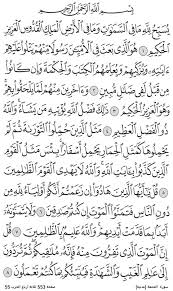 بِسْمِ ٱللَّهِ ٱلرَّحْمَٰنِ ٱلرَّحِيمِ
يُسَبِّحُ لِلَّهِ مَا فِي ٱلسَّمَٰوَٰتِ وَمَا فِي ٱلْأَرْضِ ٱلْمَلِكِ ٱلْقُدُّوسِ ٱلْعَزِيزِ
ٱلْحَكِيمِ ١ هُوَ ٱلَّذِي بَعَثَ فِي ٱلْأُمِّيِّۦنَ رَسُولًا مِّنْهُمْ يَتْلُوا۟ عَلَيْهِمْ
ءَايَٰتِهِۦ وَيُزَكِّيهِمْ وَيُعَلِّمُهُمُ ٱلْكِتَٰبَ وَٱلْحِكْمَةَ وَإِن كَانُوا۟
مِن قَبْلُ لَفِي ضَلَٰلٍ مُّبِينٍ ٢ وَءَاخَرِينَ مِنْهُمْ لَمَّا يَلْحَقُوا۟ بِهِمْ
وَهُوَ ٱلْعَزِيزُ ٱلْحَكِيمُ ٣ ذَٰلِكَ فَضْلُ ٱللَّهِ يُؤْتِيهِ مَن يَشَآءُ وَٱللَّهُ
ذُو ٱلْفَضْلِ ٱلْعَظِيمِ ٤ مَثَلُ ٱلَّذِينَ حُمِّلُوا۟ ٱلتَّوْرَىٰةَ ثُمَّ لَمْ
يَحْمِلُوهَا كَمَثَلِ ٱلْحِمَارِ يَحْمِلُ أَسْفَارًۢا بِئْسَ مَثَلُ ٱلْقَوْمِ ٱلَّذِينَ
كَذَّبُوا۟ بِـَٔايَٰتِ ٱللَّهِ وَٱللَّهُ لَا يَهْدِي ٱلْقَوْمَ ٱلظَّٰلِمِينَ ٥
قُلْ يَٰٓأَيُّهَا ٱلَّذِينَ هَادُوٓا۟ إِن زَعَمْتُمْ أَنَّكُمْ أَوْلِيَآءُ لِلَّهِ مِن دُونِ
ٱلنَّاسِ فَتَمَنَّوُا۟ ٱلْمَوْتَ إِن كُنتُمْ صَٰدِقِينَ ٦ وَلَا يَتَمَنَّوْنَهُۥٓ
أَبَدًۢا بِمَا قَدَّمَتْ أَيْدِيهِمْ وَٱللَّهُ عَلِيمٌۢ بِٱلظَّٰلِمِينَ ٧ قُلْ إِنَّ
ٱلْمَوْتَ ٱلَّذِي تَفِرُّونَ مِنْهُ فَإِنَّهُۥ مُلَٰقِيكُمْ ثُمَّ تُرَدُّونَ
إِلَىٰ عَٰلِمِ ٱلْغَيْبِ وَٱلشَّهَٰدَةِ فَيُنَبِّئُكُم بِمَا كُنتُمْ تَعْمَلُونَ ٨
سورة الجمعة صفحة 553 55